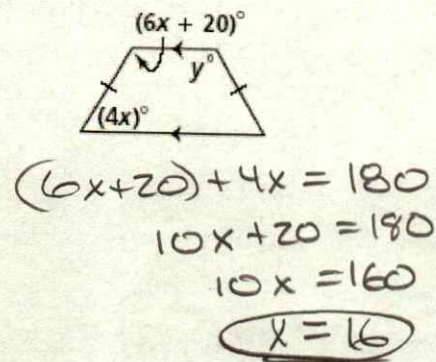 (6x + 20)°
y°
(4x)°
(6x+20)+4x = 180
10x+20 = 180
10x = 160
x = 16